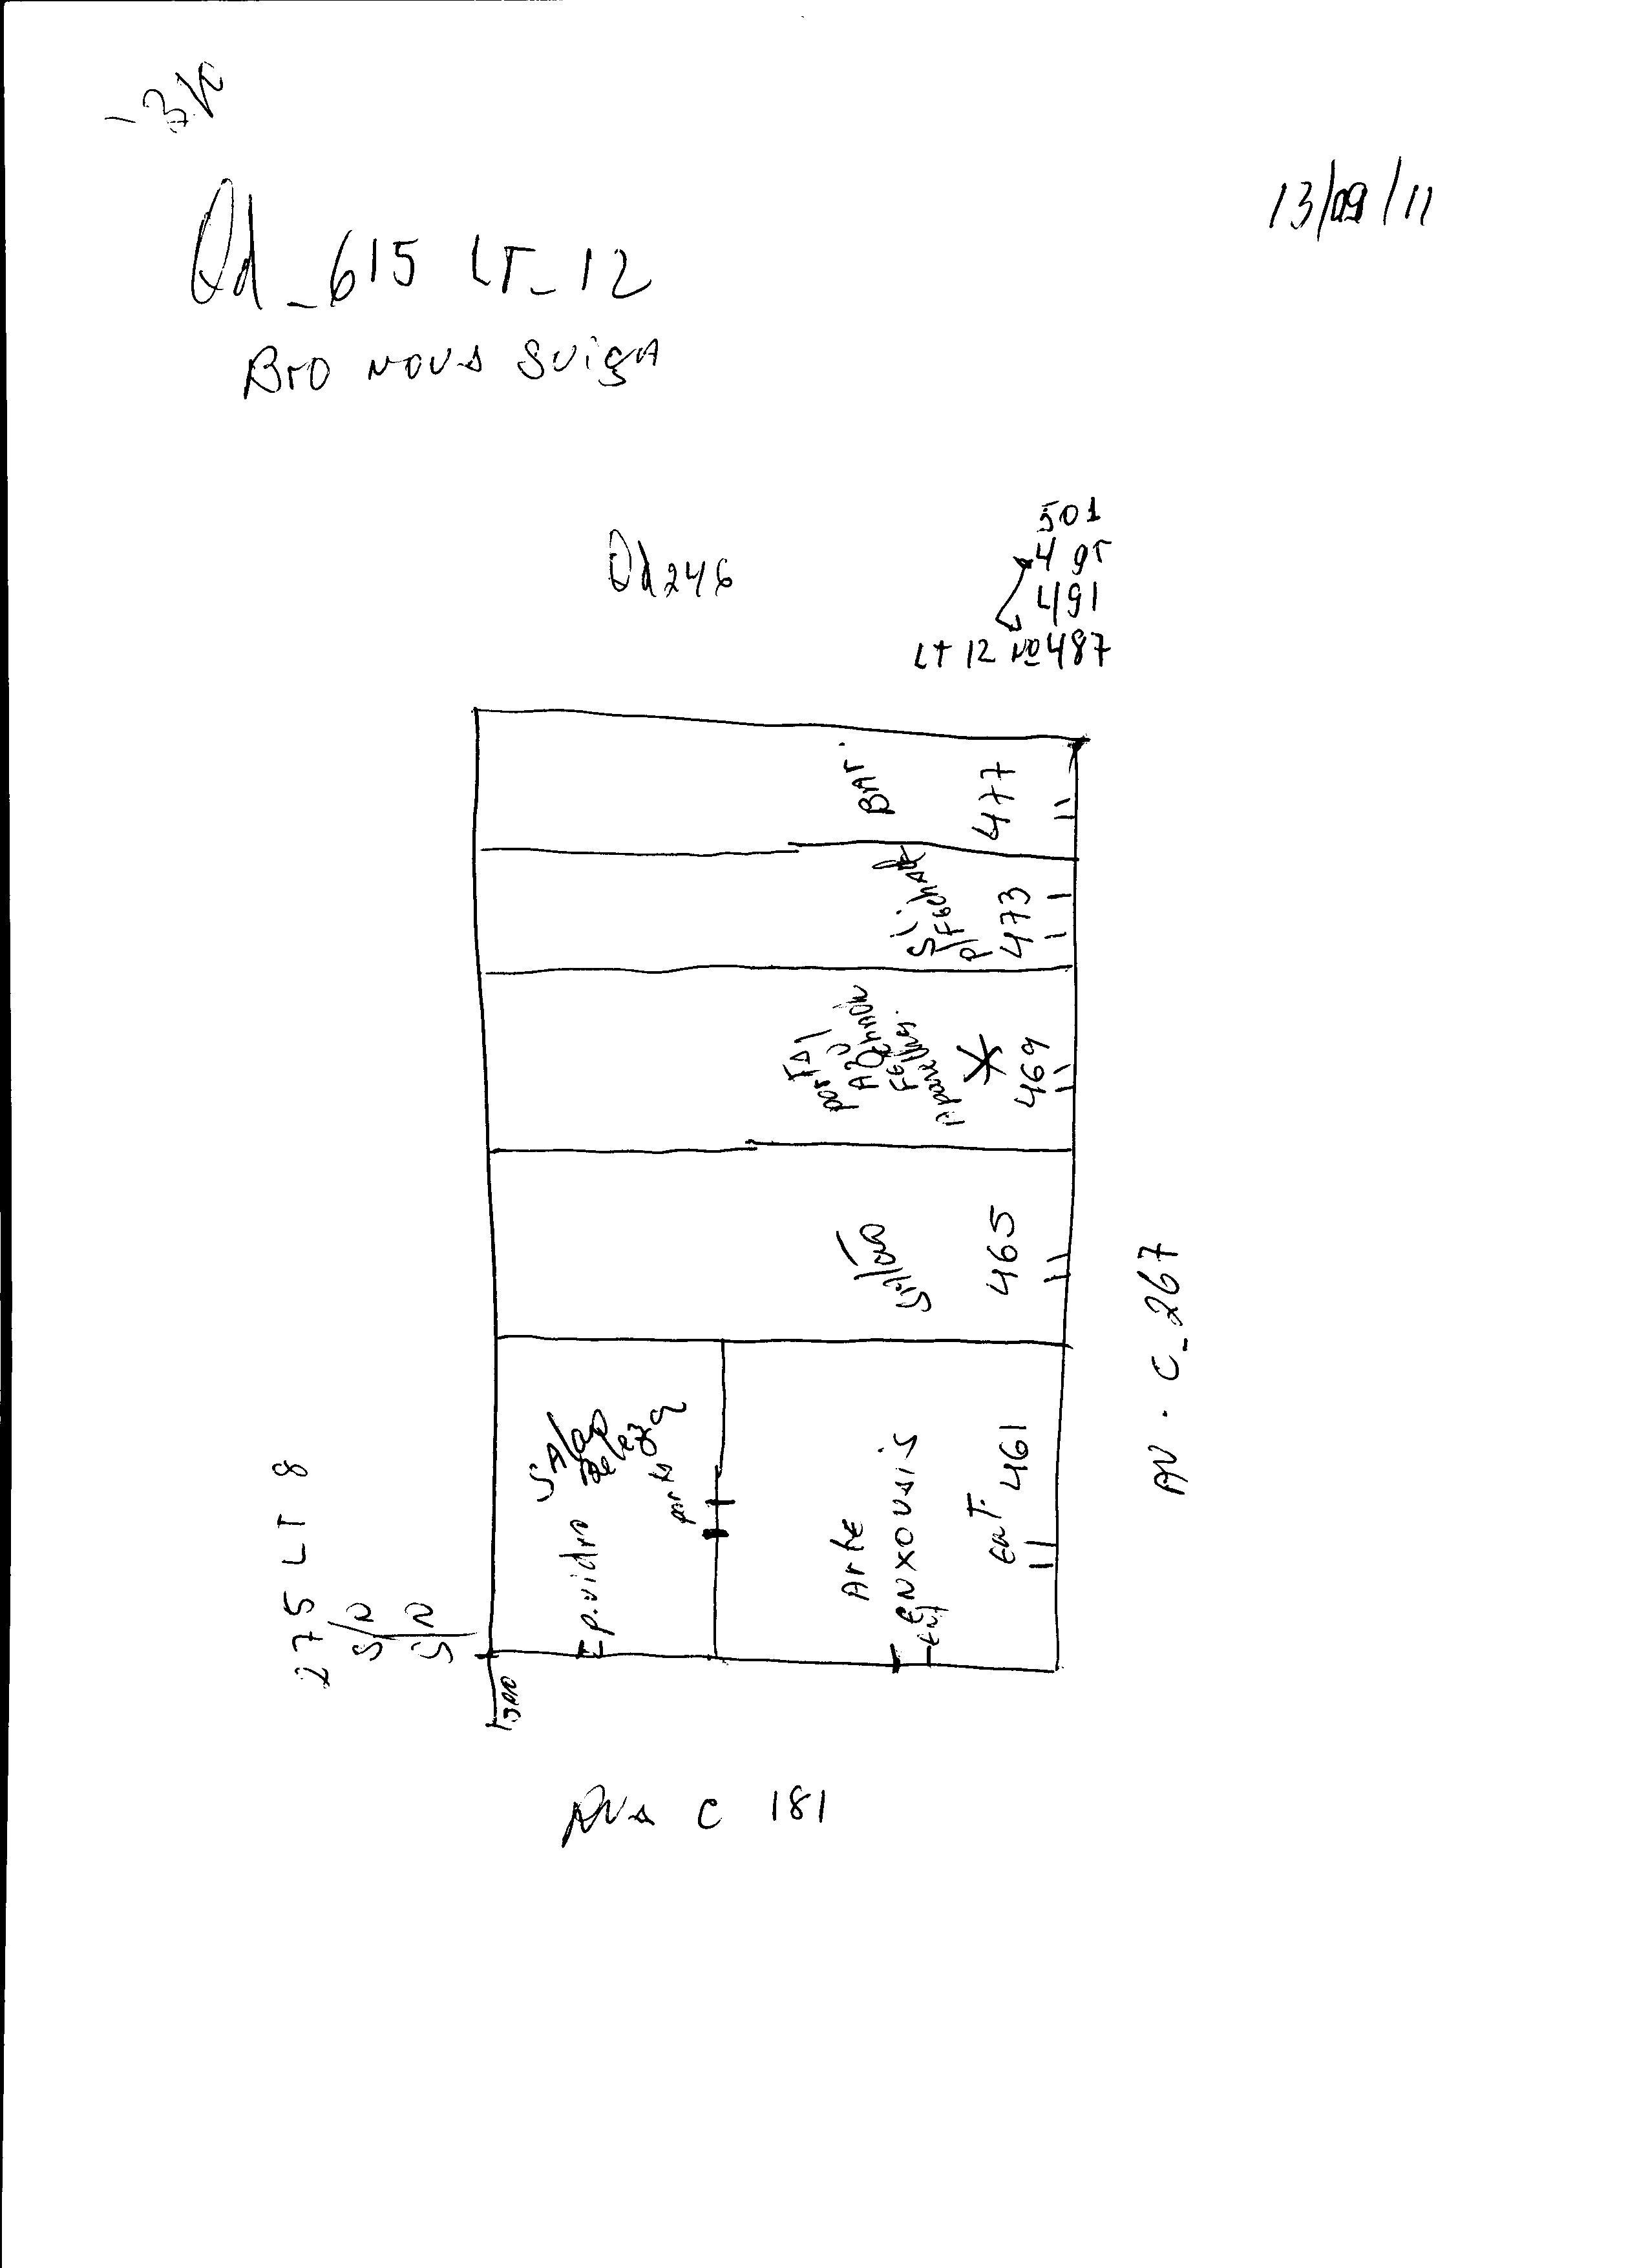 13/09/11
Qd_615 LT_12
Bro NOVA SUiçA
501
4 gr
Qd 246
491
LT 12 Nº 487
BAr.
477
S i.
p/Fechada
473
469
465
SAlão
Beleza
porta
p.vidro
Arte
ENXOVAiS
EnT.
461
EnT
AV. C_267
275 LT 8
S/N
SN
RUA C 181